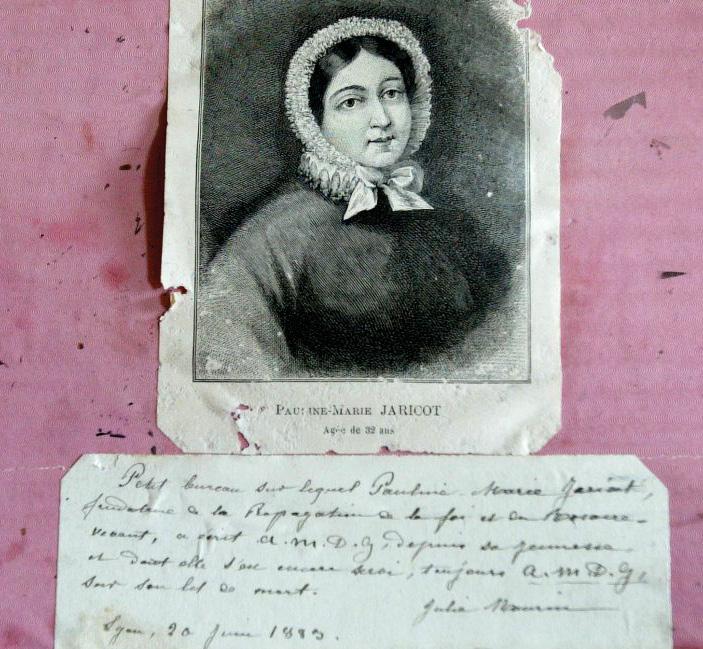 PAULINE-MARIE JARICOT
Agée de 32 ans
Petit bureau sur lequel Pauline Marie Jaricot,
fondatrice de la Propagation de la foi et du Rosaire-
vivant, a écrit A.M.D.G, depuis sa jeunesse
et dont elle s'est encore servi, toujours A.M.D.G,
sur son lit de mort.
Julia Maurin
Lyon, 20 Juin 1883.